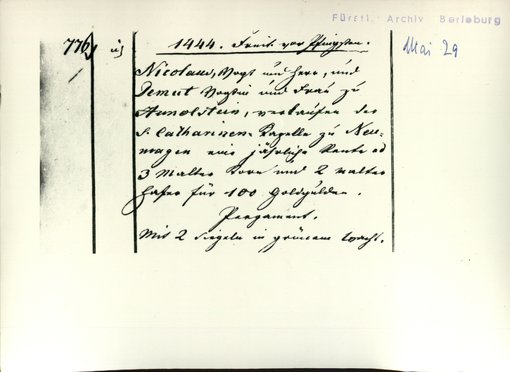 Fürstl. Archiv Berleburg
776
1444. Freit. vor Pfingsten.
Mai 29
Nicolaus, Vogt und Herr, und
Demut Vogtin und Frau zu
Hunolstein, verkaufen der
S. Catharinen Kapelle zu Neu-
magen eine jährliche Rente ad
3 Malter Korn und 2 Malter
Hafer für 100 Goldgulden.
Pergament.
Mit 2 Siegeln in grünem Wachs.